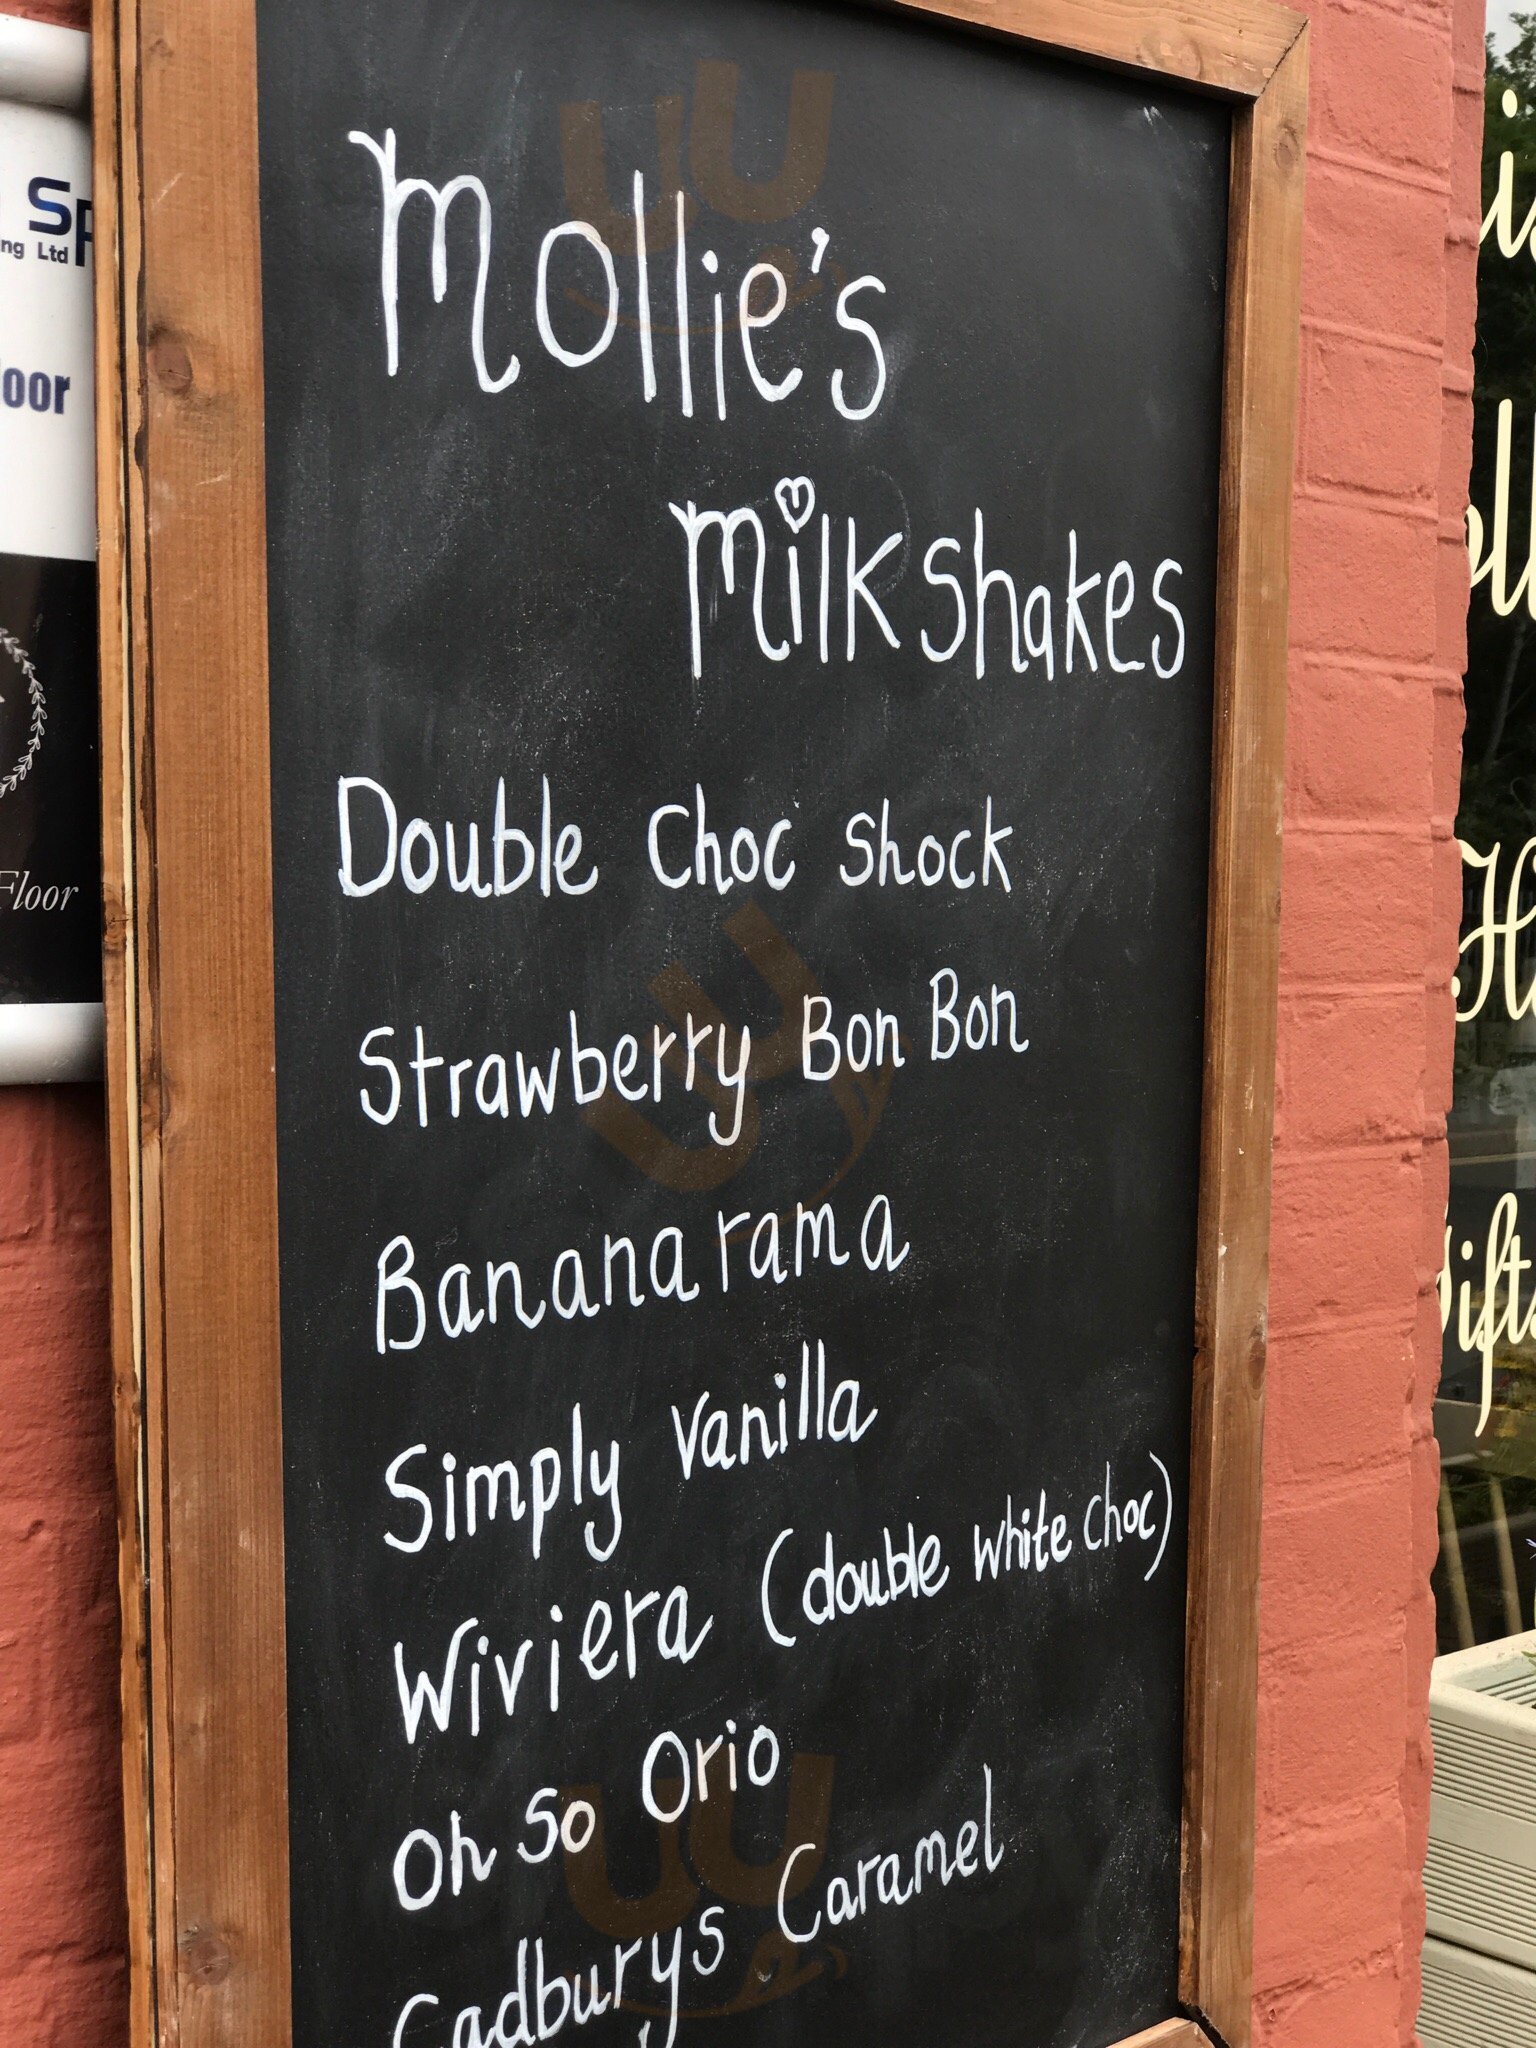 Mollie's
Milkshakes
Double Choc Shock
Strawberry Bon Bon
Bananarama
Simply Vanilla
Wiviera (double white choc)
Oh So Orio
Cadburys Caramel
ng Ltd
Floor